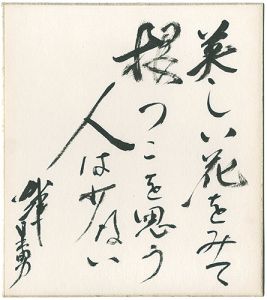 美しい花をみて
根っこを思う
人は少ない